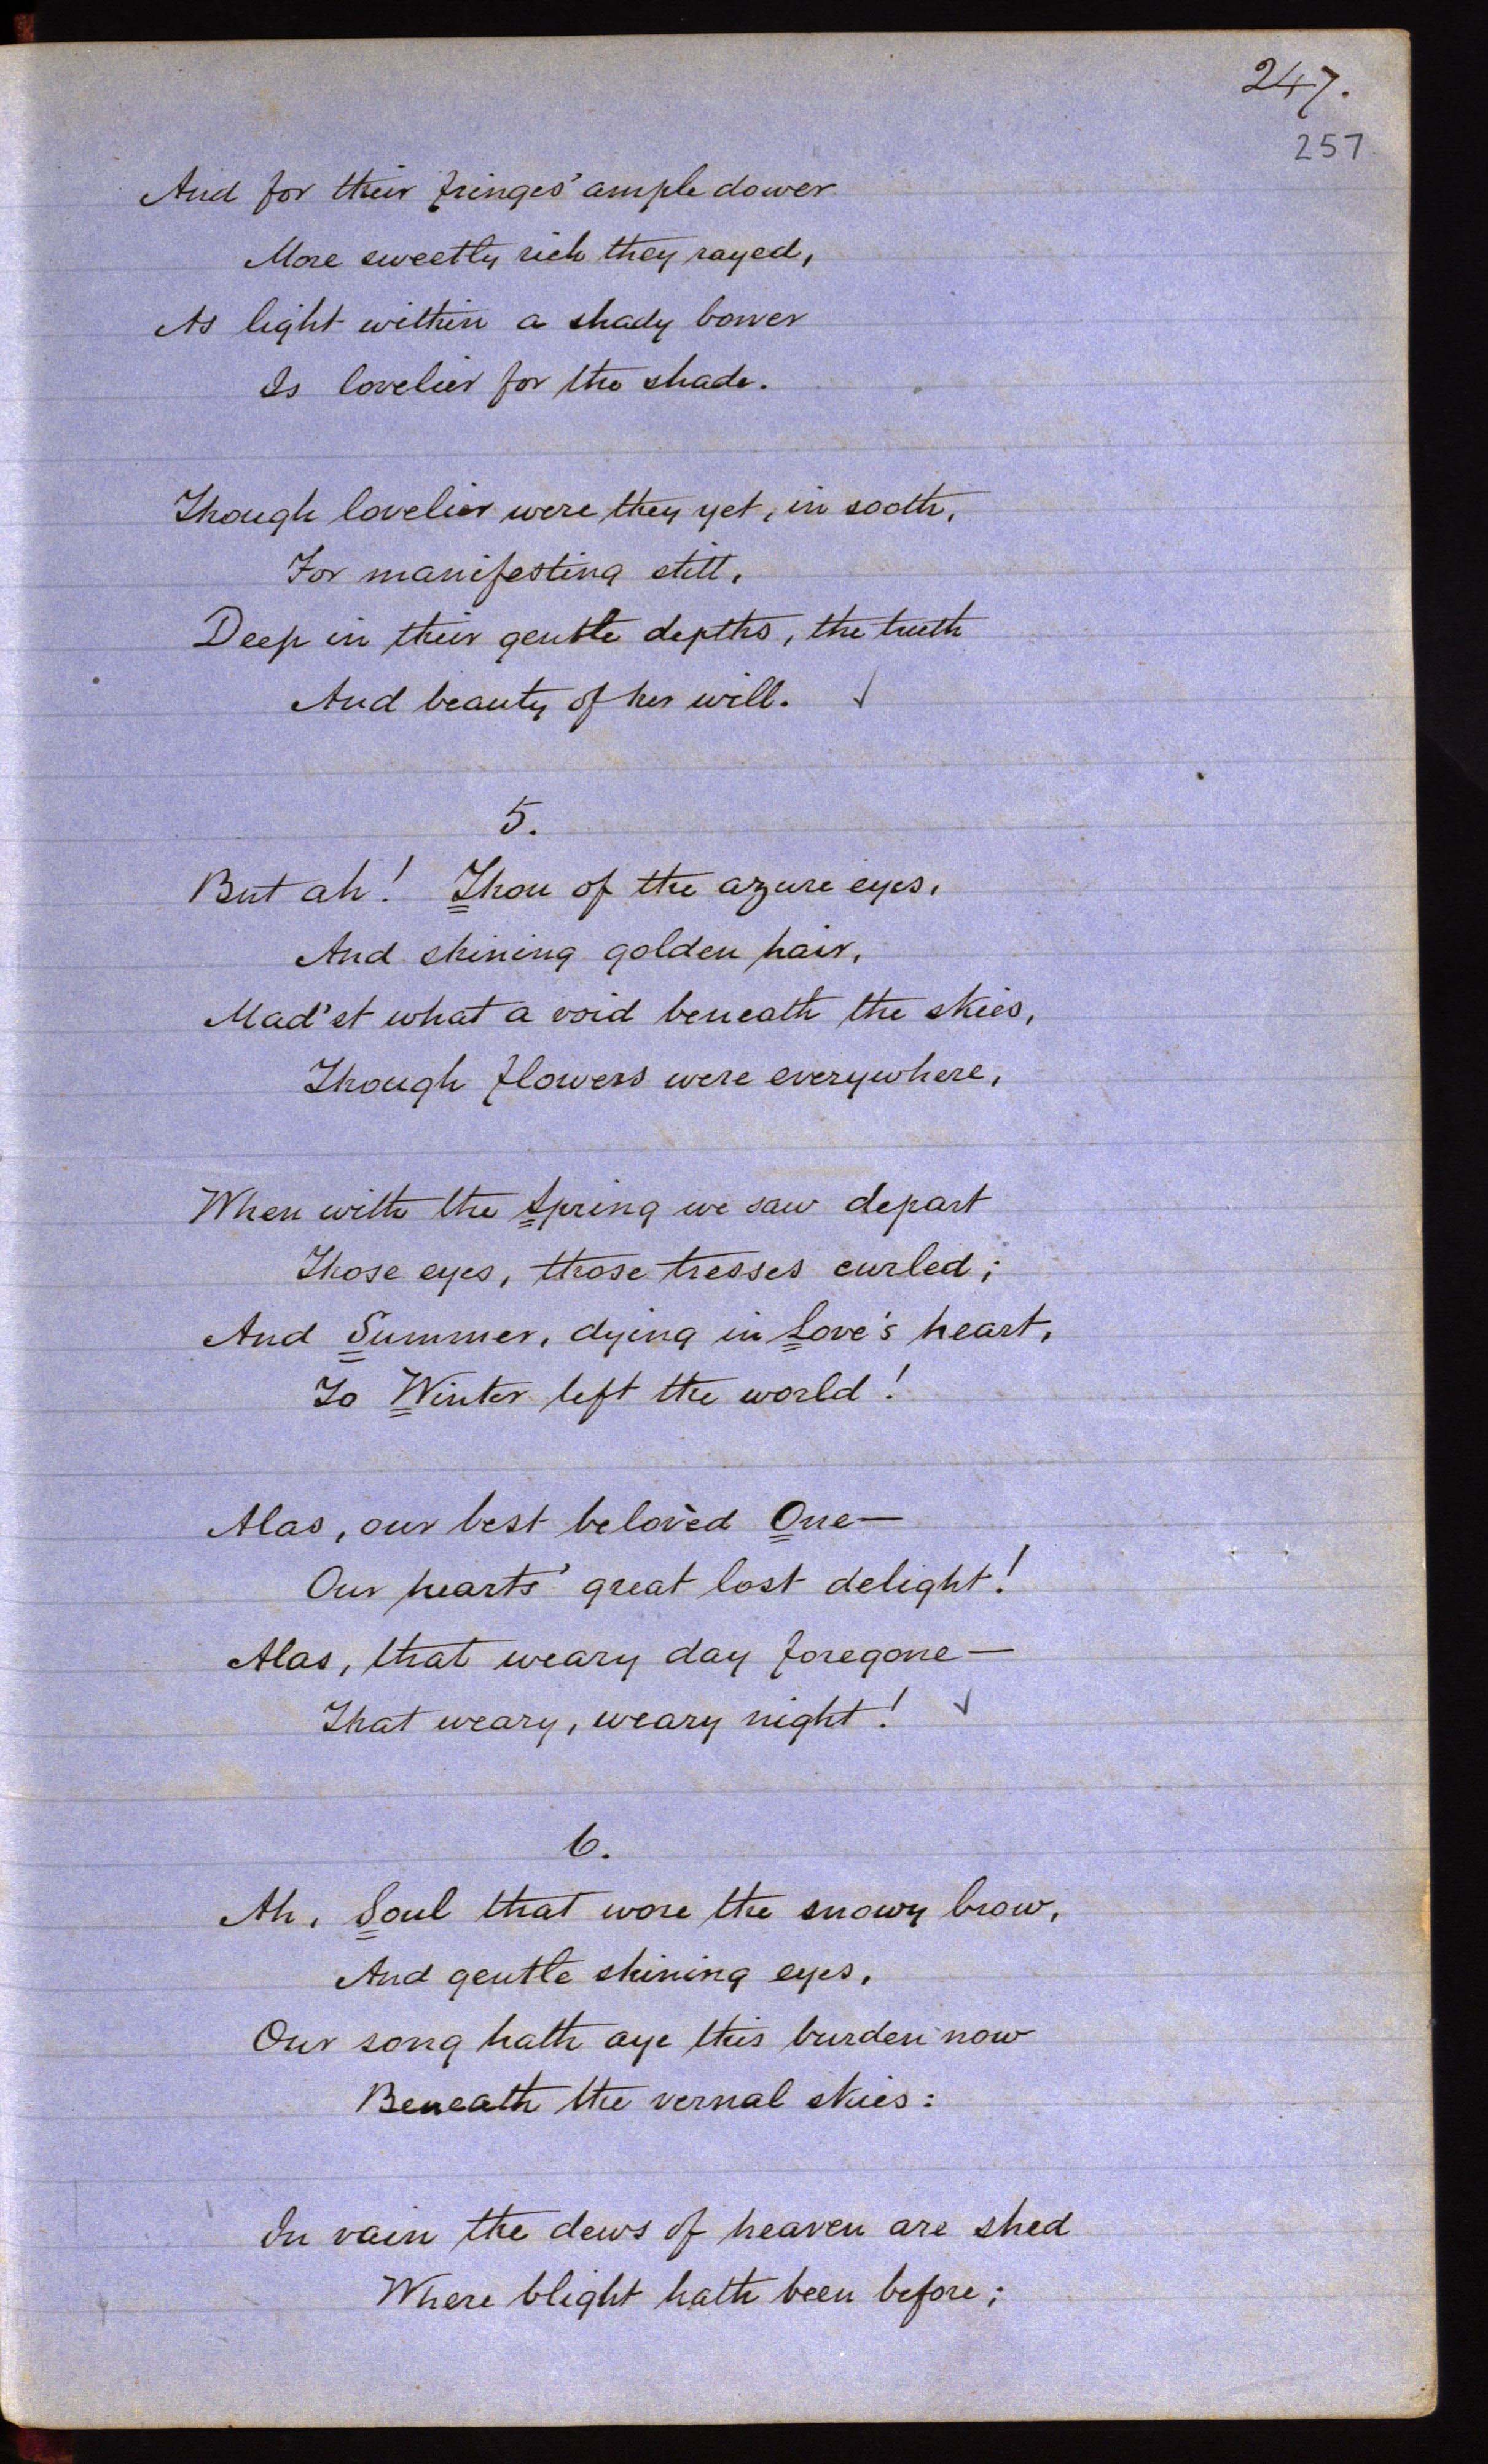 247.
257
And for their fringes' ample dower
More sweetly rich they rayed,
As light within a shady bower
Is lovelier for the shade.
Though lovelier were they yet, in sooth,
For manifesting still,
Deep in their gentle depths, the truth
And beauty of her will. ✓
5.
But ah! Thou of the azure eyes,
And shining golden hair,
Mad'st what a void beneath the skies,
Though flowers were everywhere,
When with the Spring we saw depart
Those eyes, those tresses curled;
And Summer, dying in Love's heart,
To Winter left the world!
Alas, our best belovèd One—
Our hearts' great lost delight!
Alas, that weary day foregone—
That weary, weary night! ✓
6.
Ah, Soul that wore the snowy brow,
And gentle shining eyes,
Our song hath aye this burden now
Beneath the vernal skies:
In vain the dews of heaven are shed
Where blight hath been before;